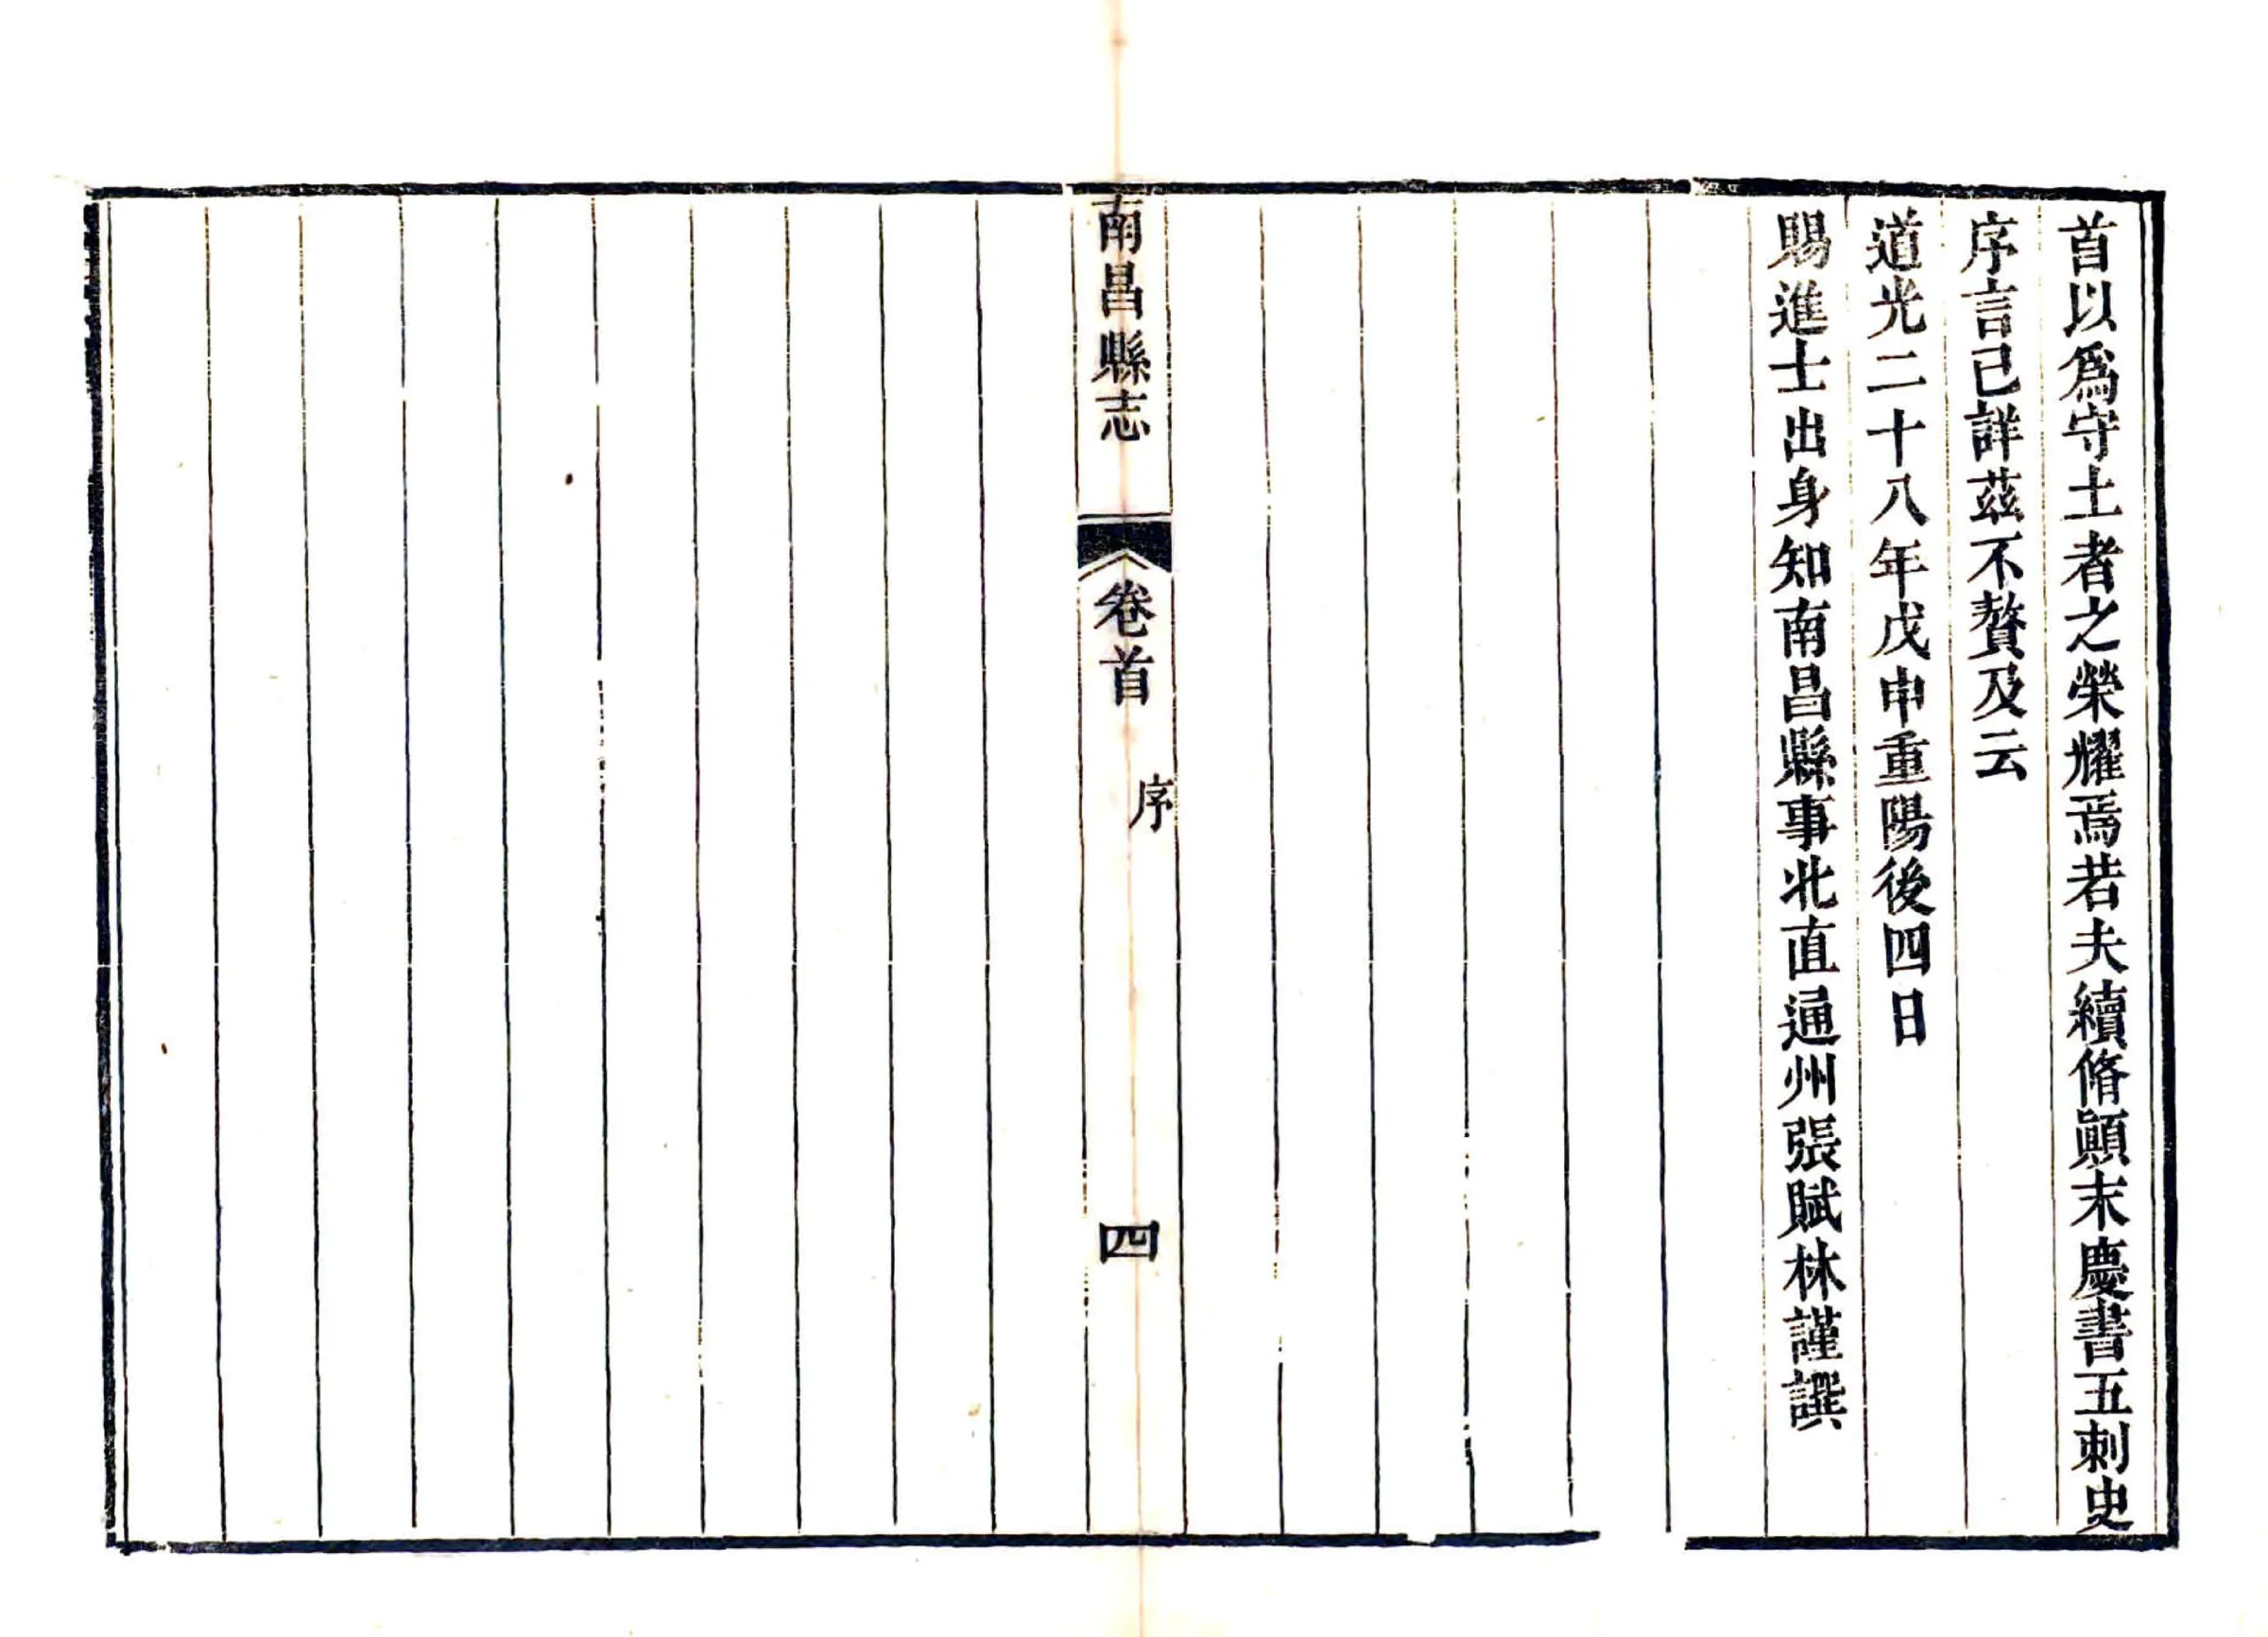 首以爲守土者之榮耀焉若夫續脩顚末慶書五刺史
序言已詳茲不贅及云
道光二十八年戊申重陽後四日
賜進士出身知南昌縣事北直通州張賦林謹譔
南昌縣志
卷首
序
四